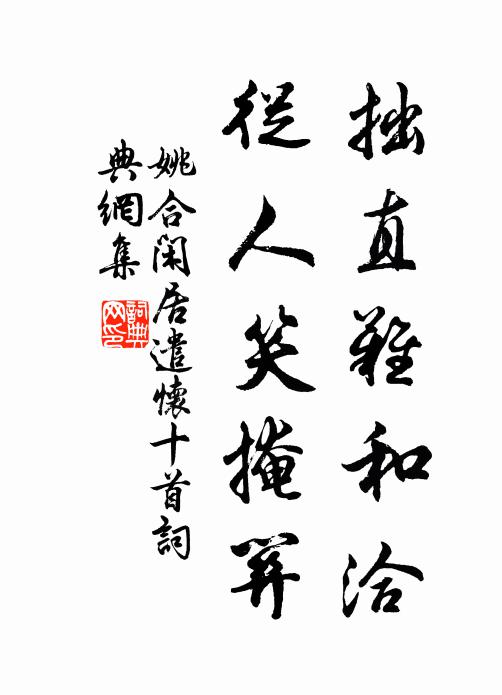 拙直難和洽
從人笑掩關
姚合閑居遣懷十首詞
典網集
詞典
网印